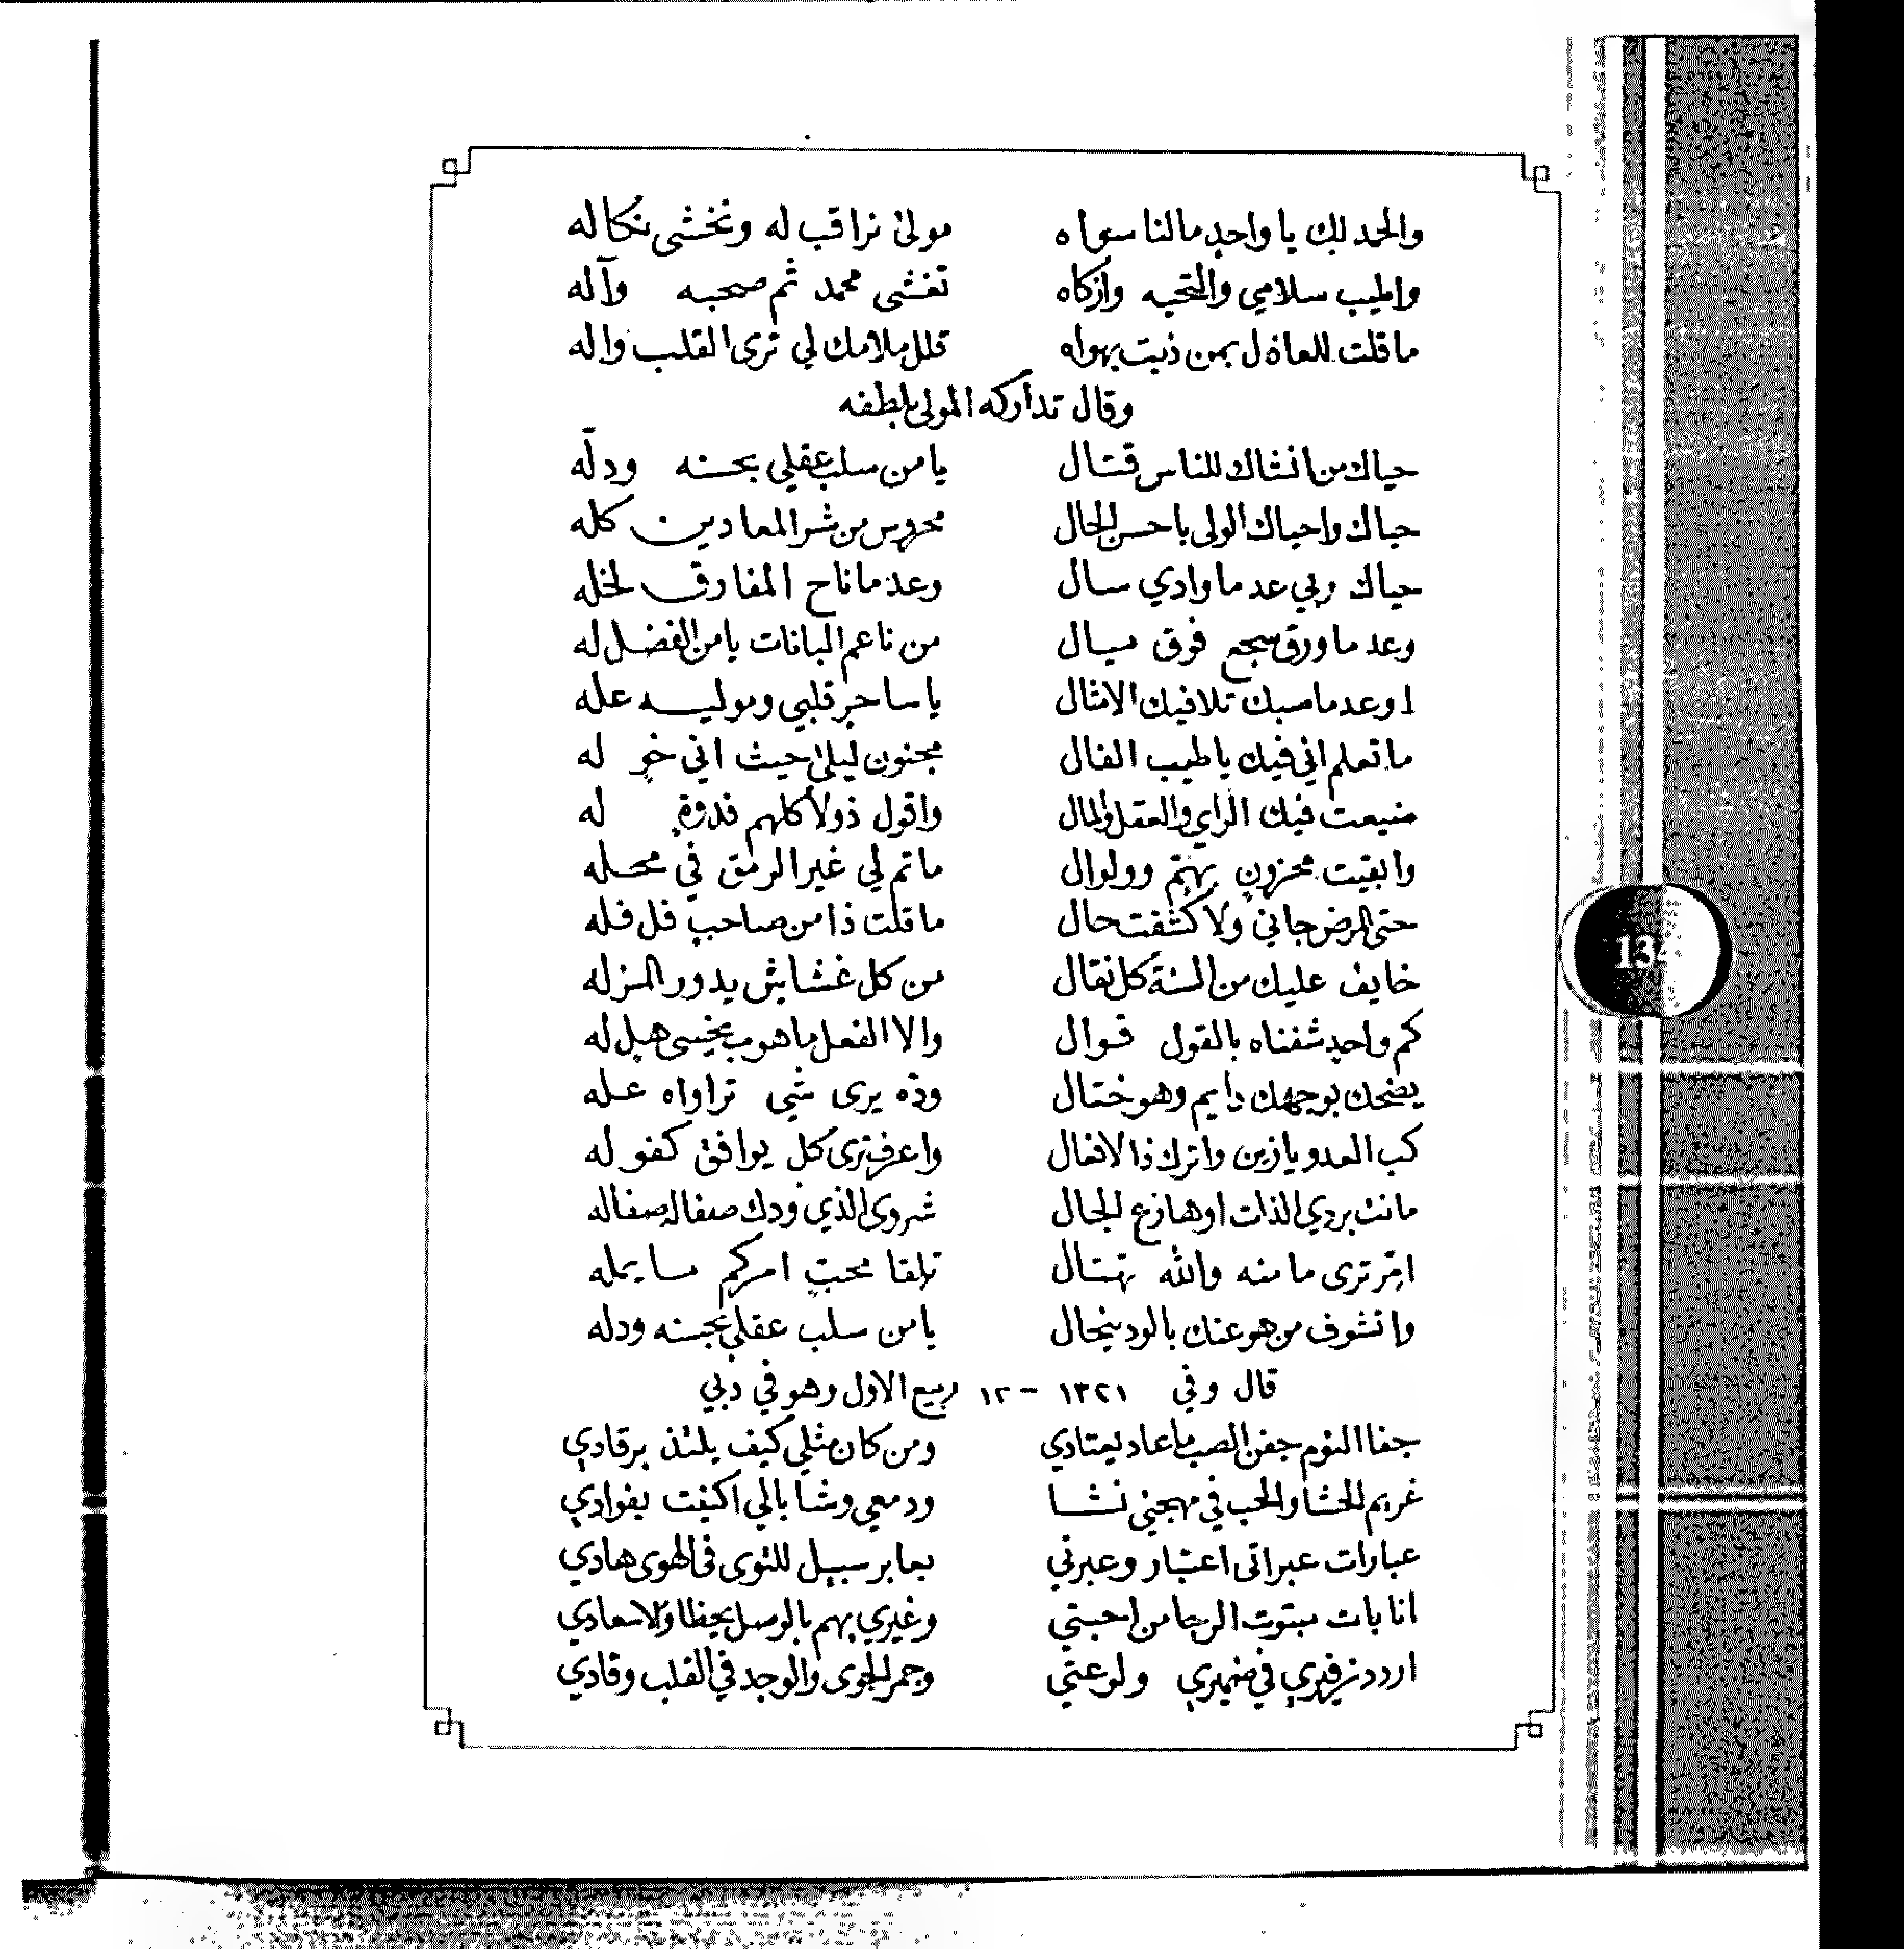 والحمد لك يا واحدٍ مالنا سواه مولىٰ نراقب له ونخشى نكاله
واطيب سلامي والتحيه وازكاه تغشى محمد ثم صحبه وآله
ما قلت للعاذل بمن ذبت بهواه قلل ملامك لي ترى القلب واله
وقال تداركه المولى بلطفه
حياك من انشاك للناس قتال يا من سلب عقلي بحسنه ودلّه
حياك واحياك الولي باحسن الحال محروس من شر المعادين كله
حياك ربي عد ما وادي سال وعد ما ناح المفارق لخله
وعد ما ورق سجع فوق ميال من ناعم البانات يا من الفضل له
اوعد ما سبك تلافيك الامثال يا ساحرٍ قلبي وموليه عله
ما تعلم اني فيك يا طيب الفال مجنون ليلىٰ حيث اني له
ضيعت فيك الراي والعقل والمال واقول ذولا كلهم فدوةٍ له
وابقيت محزونٍ بهتم وولوال ما تم لي غير الرمق في محله
حتى المرض جاني ولا كشفت حال ما قلت ذا من صاحبٍ فل فله
خايف عليك من السنة كل نقال من كل غشاشٍ يدور المزله
كم واحدٍ شفناه بالقول قوال والا الفعل ما هوب يخسى هبل له
يضحك بوجهك دايم وهو ختال ودّه يرى شي تراواه عله
كب العدو يا زين واترك ذا الافعال واعرف ترى كلٍ يوافق كفو له
مانت بردي الذات اوهازع الجال شروى الذي ودك صفاله صفاله
امر ترى ما منه والله تهتال تلقا محبٍ امركم ما يمله
وانشوف من هو عنك بالود ينحال يا من سلب عقلي بحسنه ودله
قال وفي ١٣٢١ – ١٢ ربيع الاول وهو في دبي
جفا النوم جفن الصب ما عاد يعتادي ومن كان مثلي كيف يلتذ برقادي
غريم الحشا والحب في مهجتي نشا ودمعي وشا بالي اكنت بفوادي
عبارات عبراتي اعتبار وعبرتي بعابر سبيل للنوى في الهوى هادي
انا بات مبتوت الرجا من احبتي وغيري بهم بالوصل يحظا ولاسعادي
اردد زفيري في ضميري ولوعتي وجمر الجوى والوجد في القلب وقادي